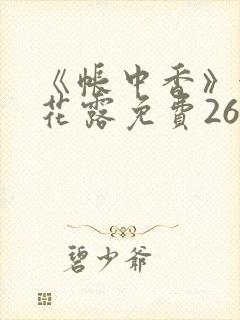 《帐中香》
花露免費26
碧少爷